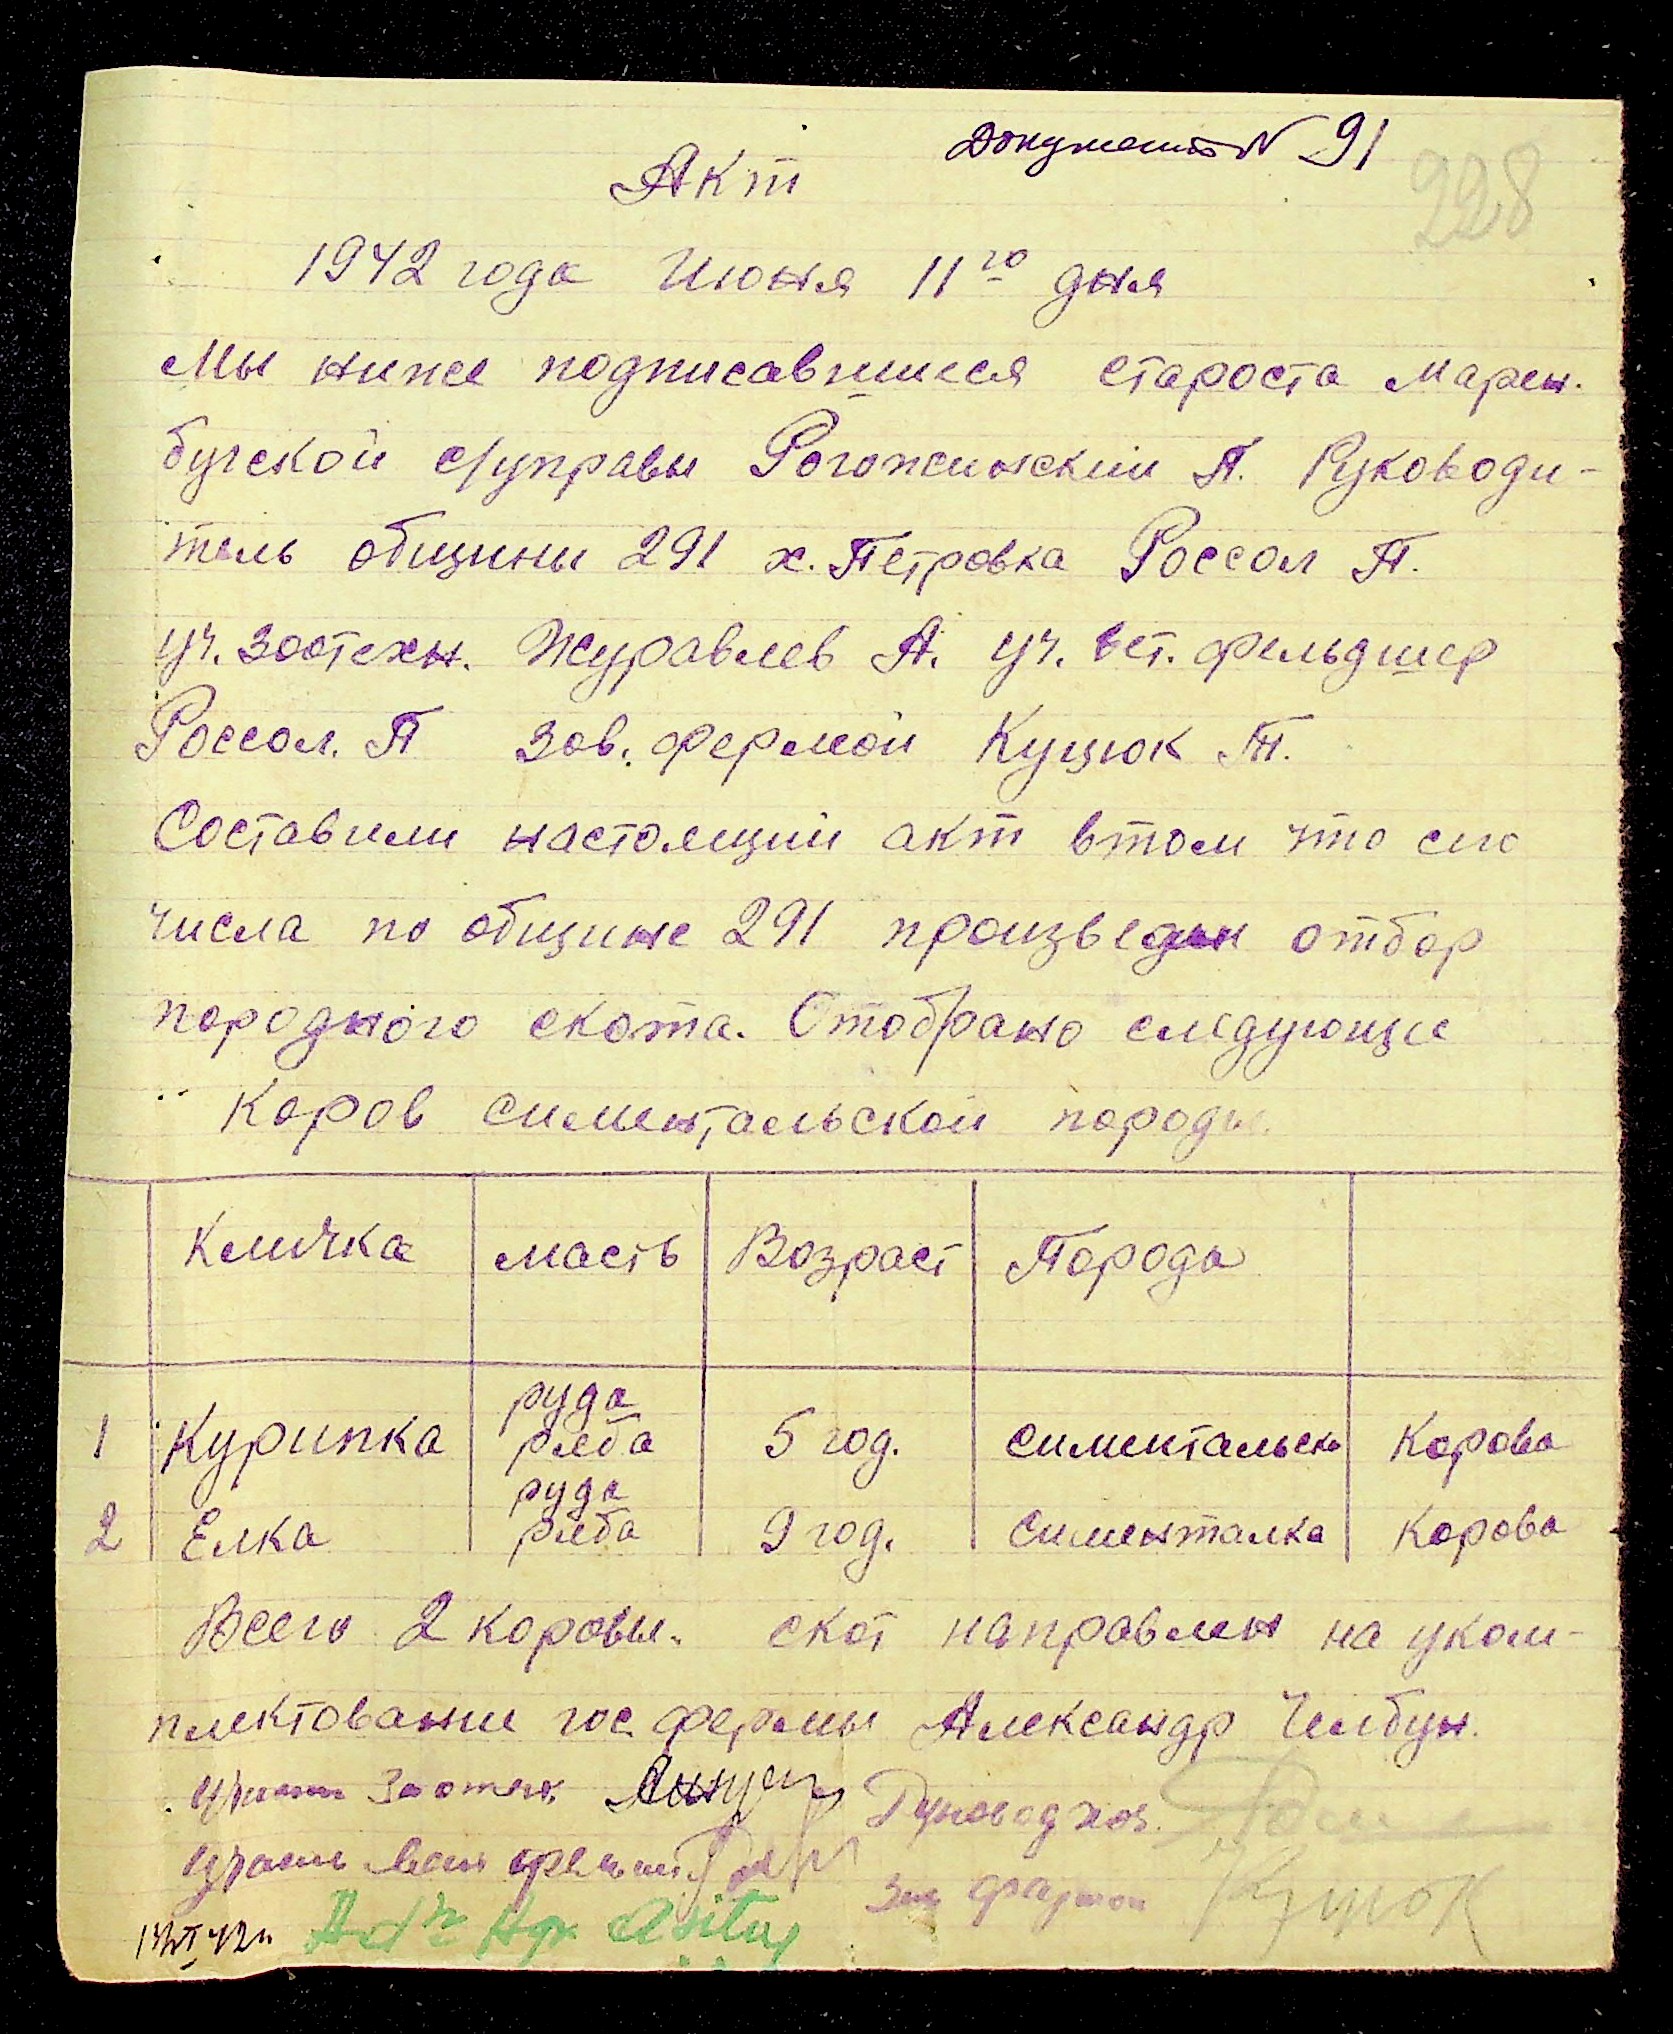 Документ N 91
228
Акт
1942 года Июня 11го дня
Мы ниже подписавшиеся староста Мариен.
бугской с/управы Рогожинский П. Руководи-
тель общины 291 х. Петровка Россол П.
уч. зоотехн. Журавлев А. уч. вет. фельдшер
Россол. П зав. фермой Куцюк Т.
Составили настоящий акт втом что сего
числа по общине 291 произведен отбор
породного скота. Отобрано следующие
коров симентальской породы.
Кличка масть Возраст Порода
руда
1 Курипка ряба 5 год. симентальск Корова
руда
2 Елка ряба 9 год. сименталка Корова
Всего 2 коровы. скот направлен на уком-
плектование гос. фермы Александр Чилбун.
Участ Зоотех. Руковод хоз.
Участ Вет фельш Зав фермой Куцюк